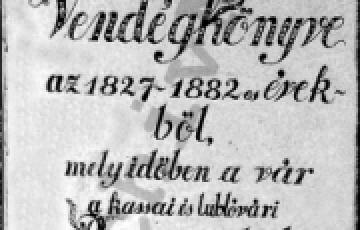 Vendégkönyve
az 1827-1882 es érek-
ből,
mely időben a vár
a kassai és lublóvári